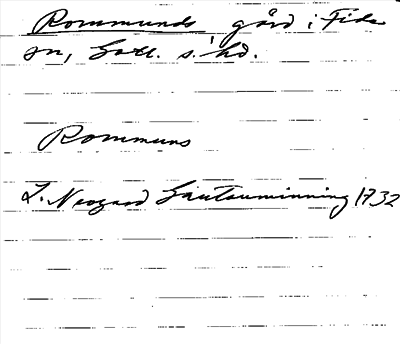 Rommunds, gård i Fide
sn, Gotl. s. hd.
Rommuns
L. Neogard Gautauminning 1732